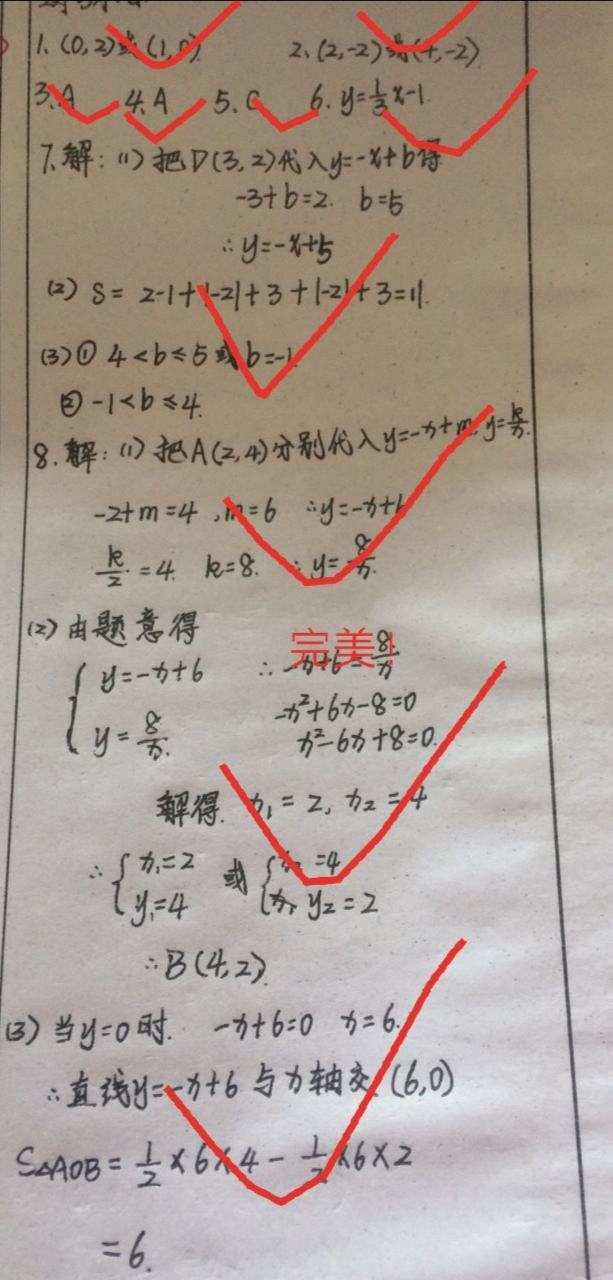 1. (0,2)或(1,0) 2. (2,-2)或(4,-2)
3. A 4. A 5. C 6. y=⅓x-1
7. 解：(1) 把D(3,2)代入y=-x+b得
-3+b=2. b=5
∴ y=-x+5
(2) S= 2-1+|-2|+3+|-2|+3=11.
(3) ① 4<b≤5或b=-1
② -1<b≤4.
8. 解：(1) 把A(2,4)分别代入y=-x+m, y=k/x.
-2+m=4, m=6 ∴y=-x+6
k/2=4. k=8. ∴y=8/x.
(2) 由题意得
完美!
{ y=-x+6 ∴ -x+6=8/x
y=8/x. -x²+6x-8=0
x²-6x+8=0.
解得 x₁=2, x₂=4
∴ { x₁=2 或 { x₂=4
y₁=4 y₂=2
∴B(4,2).
(3) 当y=0时. -x+6=0 x=6.
∴直线y=-x+6与x轴交(6,0)
S△AOB=½×6×4-½×6×2
=6.